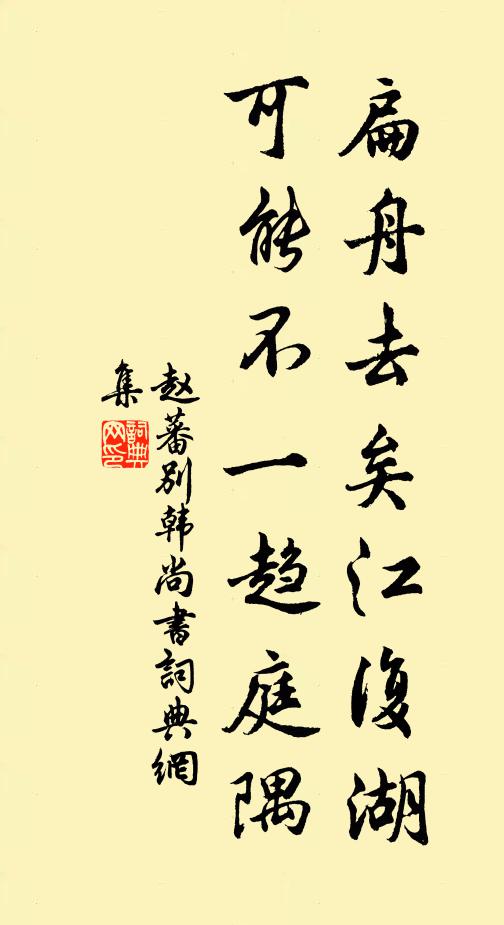 扁舟去矣江復湖
可能不一趋庭隅
赵蕃别韩尚書詞典網
集
詞典網印